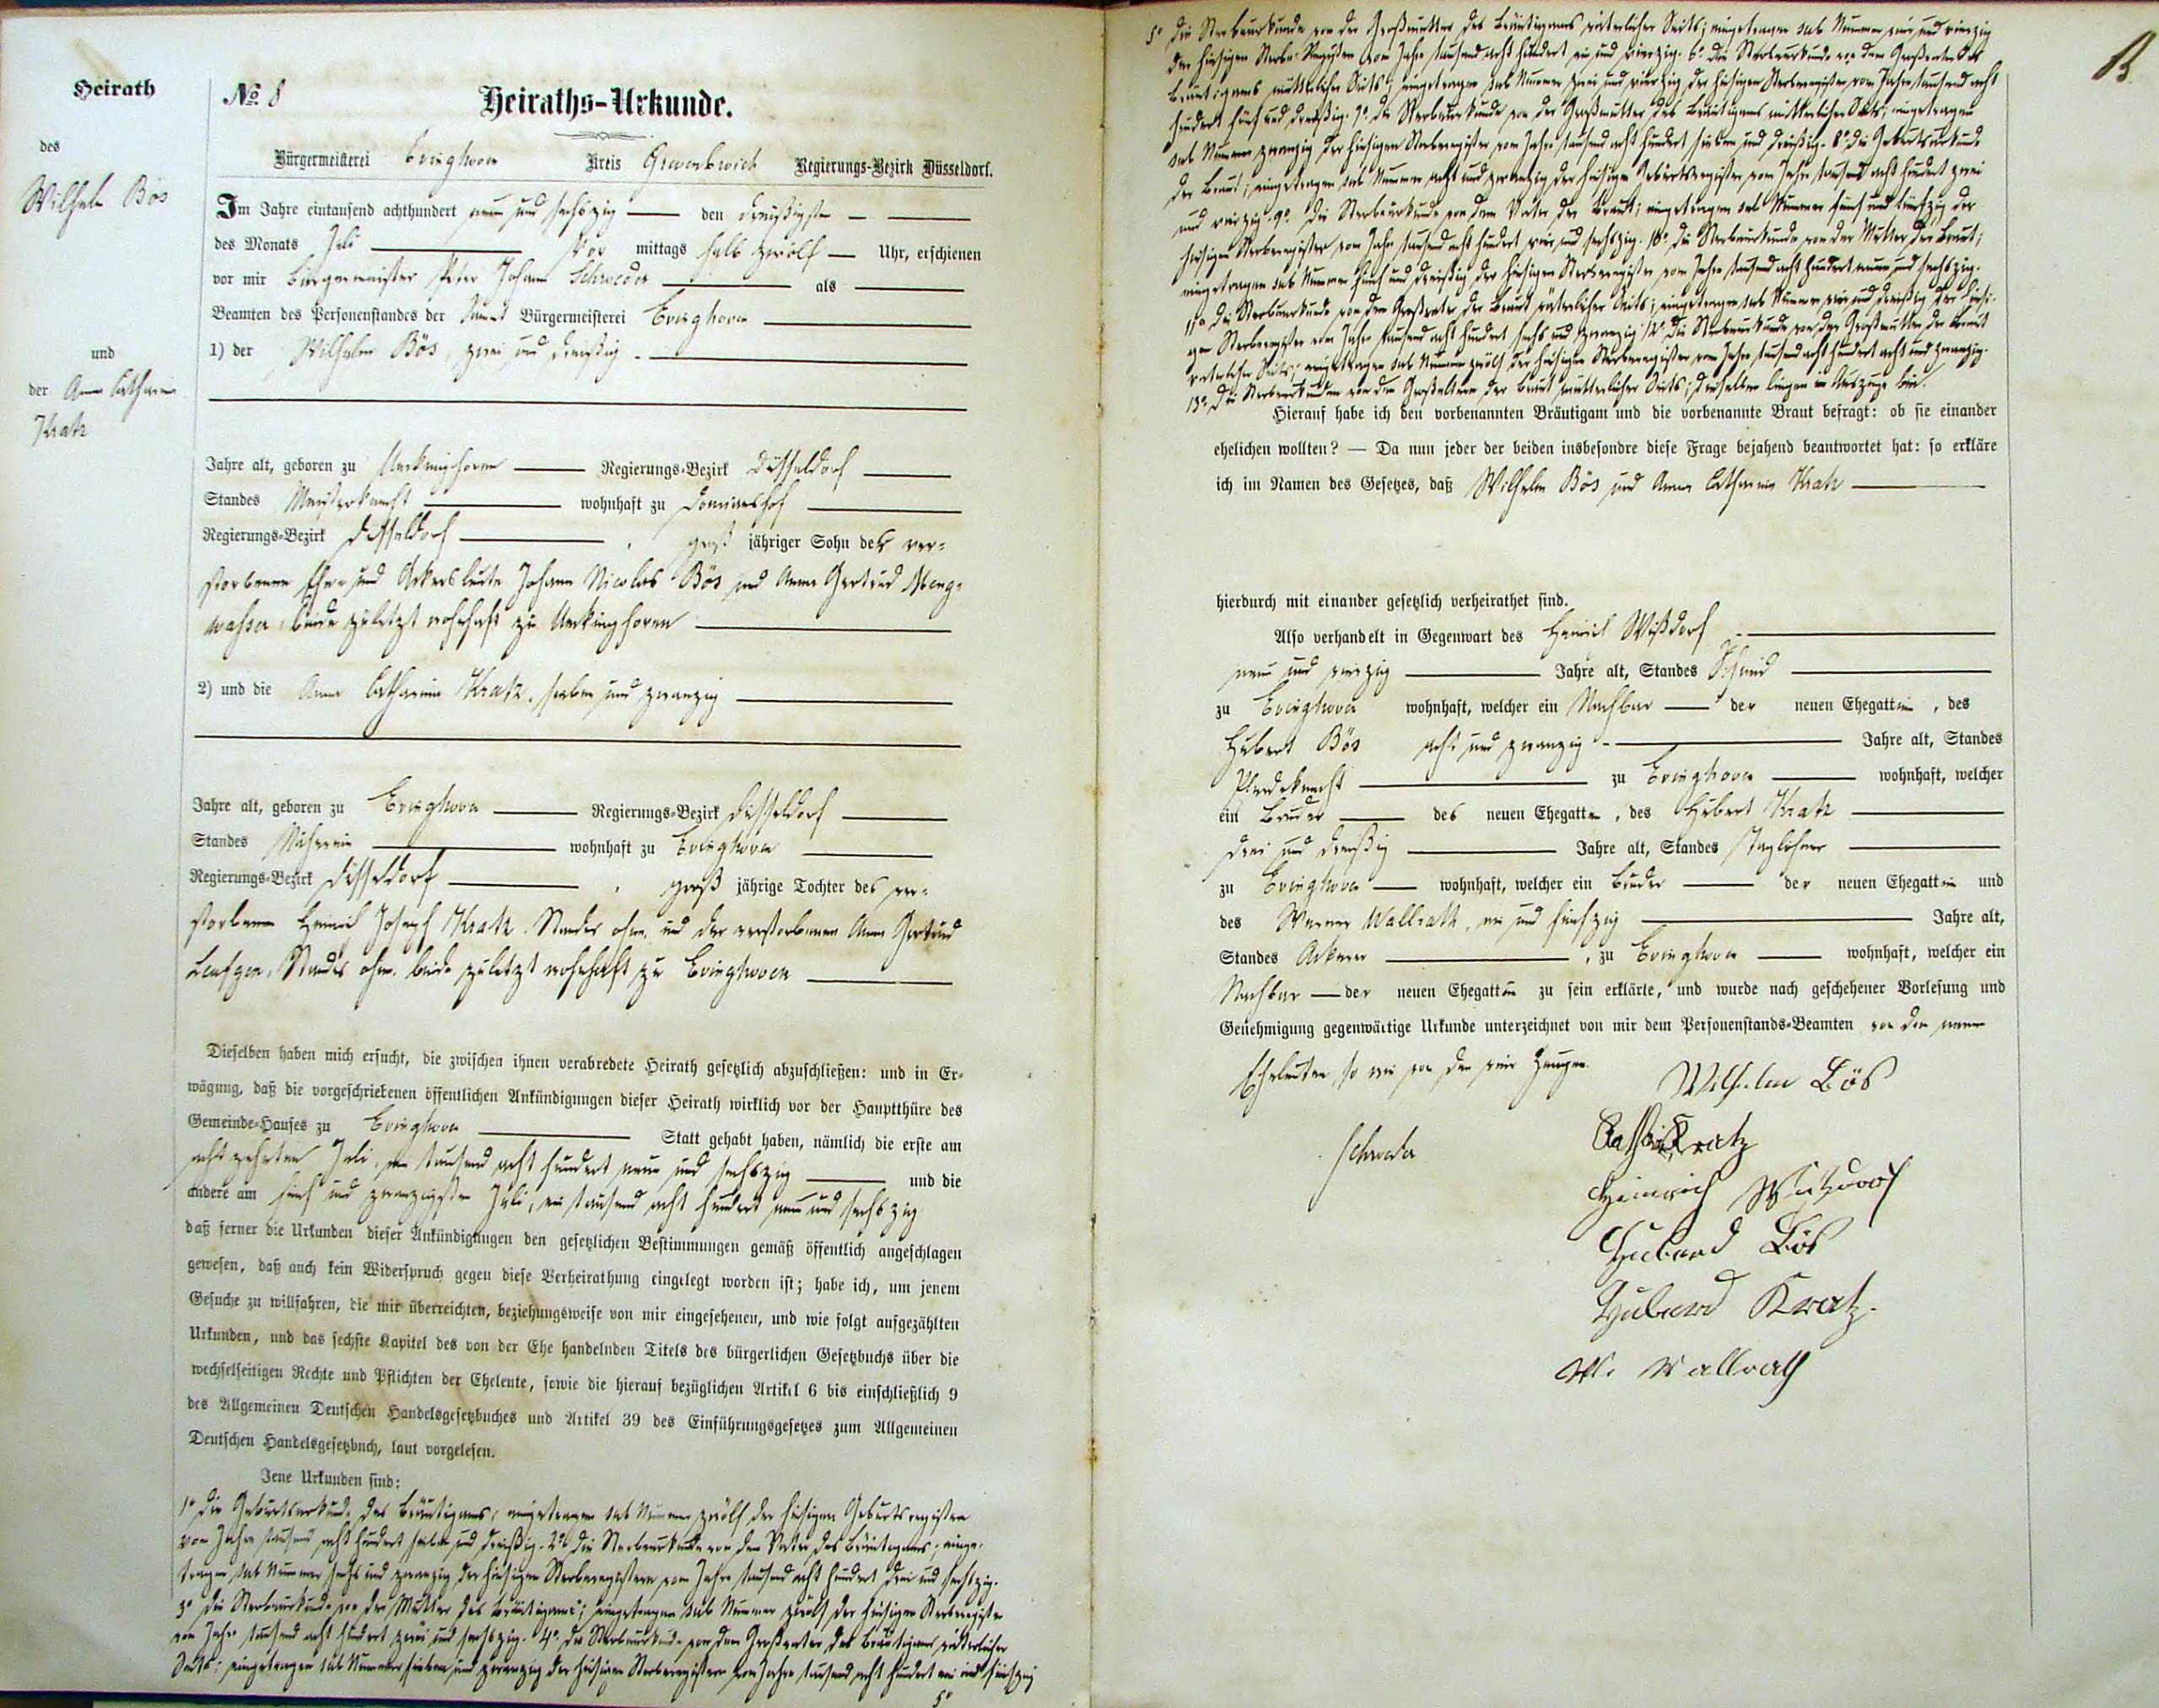 Heirath
des
Wilhelm Bös
und
der Anna Catharina
Kratz
No. 8
Heiraths-Urkunde.
Bürgermeisterei Evinghoven Kreis Grevenbroich Regierungs-Bezirk Düsseldorf.
Im Jahre eintausend achthundert neun und sechszig den dreißigsten
des Monats Juli Vor mittags halb zwölf Uhr, erschienen
vor mir Bürgermeister Peter Johann Schroeder als
Beamten des Personenstandes der Sammt Bürgermeisterei Evinghoven
1) der Wilhelm Bös, zwei und dreißig
Jahre alt, geboren zu Ueckinghoven Regierungs-Bezirk Düsseldorf
Standes wohnhaft zu
Regierungs-Bezirk Düsseldorf, groß jähriger Sohn der ver-
storbenen Ehe- und Ackersleute Johann Nicolas Bös und Anna Gertrud Meng-
wasser, beide zuletzt wohnhaft zu Ueckinghoven
2) und die Anna Catharina Kratz, sieben und zwanzig
Jahre alt, geboren zu Evinghoven Regierungs-Bezirk Düsseldorf
Standes Näherin wohnhaft zu Evinghoven
Regierungs-Bezirk Düsseldorf, groß jährige Tochter des ver-
storbenen Heinrich Joseph Kratz, Standes ohne, und der verstorbenen Anna Gertrud
Leufgen, Standes ohne, beide zuletzt wohnhaft zu Evinghoven
Dieselben haben mich ersucht, die zwischen ihnen verabredete Heirath gesetzlich abzuschließen: und in Er-
wägung, daß die vorgeschriebenen öffentlichen Ankündigungen dieser Heirath wirklich vor der Hauptthüre des
Gemeinde-Hauses zu Evinghoven Statt gehabt haben, nämlich die erste am
acht zehnten Juli, ein tausend acht hundert neun und sechszig und die
andere am fünf und zwanzigsten Juli, ein tausend acht hundert neun und sechszig
daß ferner die Urkunden dieser Ankündigungen den gesetzlichen Bestimmungen gemäß öffentlich angeschlagen
gewesen, daß auch kein Widerspruch gegen diese Verheirathung eingelegt worden ist; habe ich, um jenem
Gesuche zu willfahren, die mir überreichten, beziehungsweise von mir eingesehenen, und wie folgt aufgezählten
Urkunden, und das sechste Kapitel des von der Ehe handelnden Titels des bürgerlichen Gesetzbuchs über die
wechselseitigen Rechte und Pflichten der Eheleute, sowie die hierauf bezüglichen Artikel 6 bis einschließlich 9
des Allgemeinen Deutschen Handelsgesetzbuches und Artikel 39 des Einführungsgesetzes zum Allgemeinen
Deutschen Handelsgesetzbuch, laut vorgelesen.
Jene Urkunden sind:
1° Die Geburtsurkunde des Bräutigams; eingetragen sub Nummer zwölf der hiesigen Geburtsregister
vom Jahre tausend acht hundert sieben und dreißig. 2° Die Sterbeurkunde von dem Vater des Bräutigams; einge-
tragen sub Nummer sechs und zwanzig der hiesigen Sterberegistern vom Jahre tausend acht hundert drei und sechszig.
3° Die Sterbeurkunde von der Mutter des Bräutigams; eingetragen sub Nummer zwölf der hiesigen Sterberegister
vom Jahre tausend acht hundert zwei und sechszig. 4° die Sterbeurkunde von dem Großvater des Bräutigams väterlicher
Seits; eingetragen sub Nummer sieben und zwanzig der hiesigen Sterberegistern vom Jahre tausend acht hundert ein und fünfzig
5°
B
5° Die Sterbeurkunde von der Großmutter des Bräutigams väterlicher Seits; eingetragen sub Nummer vier und vierzig
der hiesigen Sterbe-Register vom Jahre tausend acht hundert ein und vierzig. 6° die Sterbeurkunde von dem Großvater des
Bräutigams mütterlicher Seits; eingetragen sub Nummer zwei und vierzig der hiesigen Sterberegister vom Jahre tausend acht
hundert fünf und dreißig. 7° die Sterbeurkunde von der Großmutter des Bräutigams mütterlicher Seits; eingetragen
sub Nummer zwanzig der hiesigen Sterberegister vom Jahre tausend acht hundert sieben und dreißig. 8° Die Geburtsurkunde
der Braut; eingetragen sub Nummer acht und zwanzig der hiesigen Geburtsregister vom Jahre tausend acht hundert zwei
und vierzig. 9° Die Sterbeurkunde von dem Vater der Braut; eingetragen sub Nummer fünf und fünfzig der
hiesigen Sterberegister vom Jahre tausend acht hundert vier und sechszig. 10° die Sterbeurkunde von der Mutter der Braut;
eingetragen sub Nummer fünf und dreißig der hiesigen Sterberegister vom Jahre tausend acht hundert neun und sechszig.
11° Die Sterbeurkunde von dem Großvater der Braut väterlicher Seits; eingetragen sub Nummer vier und dreißig der hiesi-
gen Sterberegister vom Jahre tausend acht hundert sechs und zwanzig 12° Die Sterbeurkunde von der Großmutter der Braut
väterlicher Seits; eingetragen sub Nummer zwölf der hiesigen Sterberegister vom Jahre tausend acht hundert acht und zwanzig.
13° Die Sterbeurkunden von den Großeltern der Braut mütterlicher Seits; dieselben liegen im Auszuge bei.
Hierauf habe ich den vorbenannten Bräutigam und die vorbenannte Braut befragt: ob sie einander
ehelichen wollten? — Da nun jeder der beiden insbesondre diese Frage bejahend beantwortet hat: so erkläre
ich im Namen des Gesetzes, daß Wilhelm Bös und Anna Catharina Kratz
hierdurch mit einander gesetzlich verheirathet sind.
Also verhandelt in Gegenwart des Heinrich Wißdorf
neun und vierzig Jahre alt, Standes Schmid
zu Evinghoven wohnhaft, welcher ein Nachbar der neuen Ehegattin, des
Hubert Bös acht und zwanzig Jahre alt, Standes
Pferdeknecht zu Evinghoven wohnhaft, welcher
ein Bruder des neuen Ehegatten, des Hubert Kratz
drei und dreißig Jahre alt, Standes Taglöhner
zu Evinghoven wohnhaft, welcher ein Bruder der neuen Ehegattin und
des Werner Wallrath, ein und fünfzig Jahre alt,
Standes Ackerer, zu Evinghoven wohnhaft, welcher ein
Nachbar der neuen Ehegattin zu sein erklärte, und wurde nach geschehener Vorlesung und
Genehmigung gegenwärtige Urkunde unterzeichnet von mir dem Personenstands-Beamten von den neuen
Eheleuten, so wie von den vier Zeugen.
Wilhelm Bös
Schroeder
Kratz
Heinrich Wißdorf
Huberd Bös
Huberd Kratz.
W. Wallrath